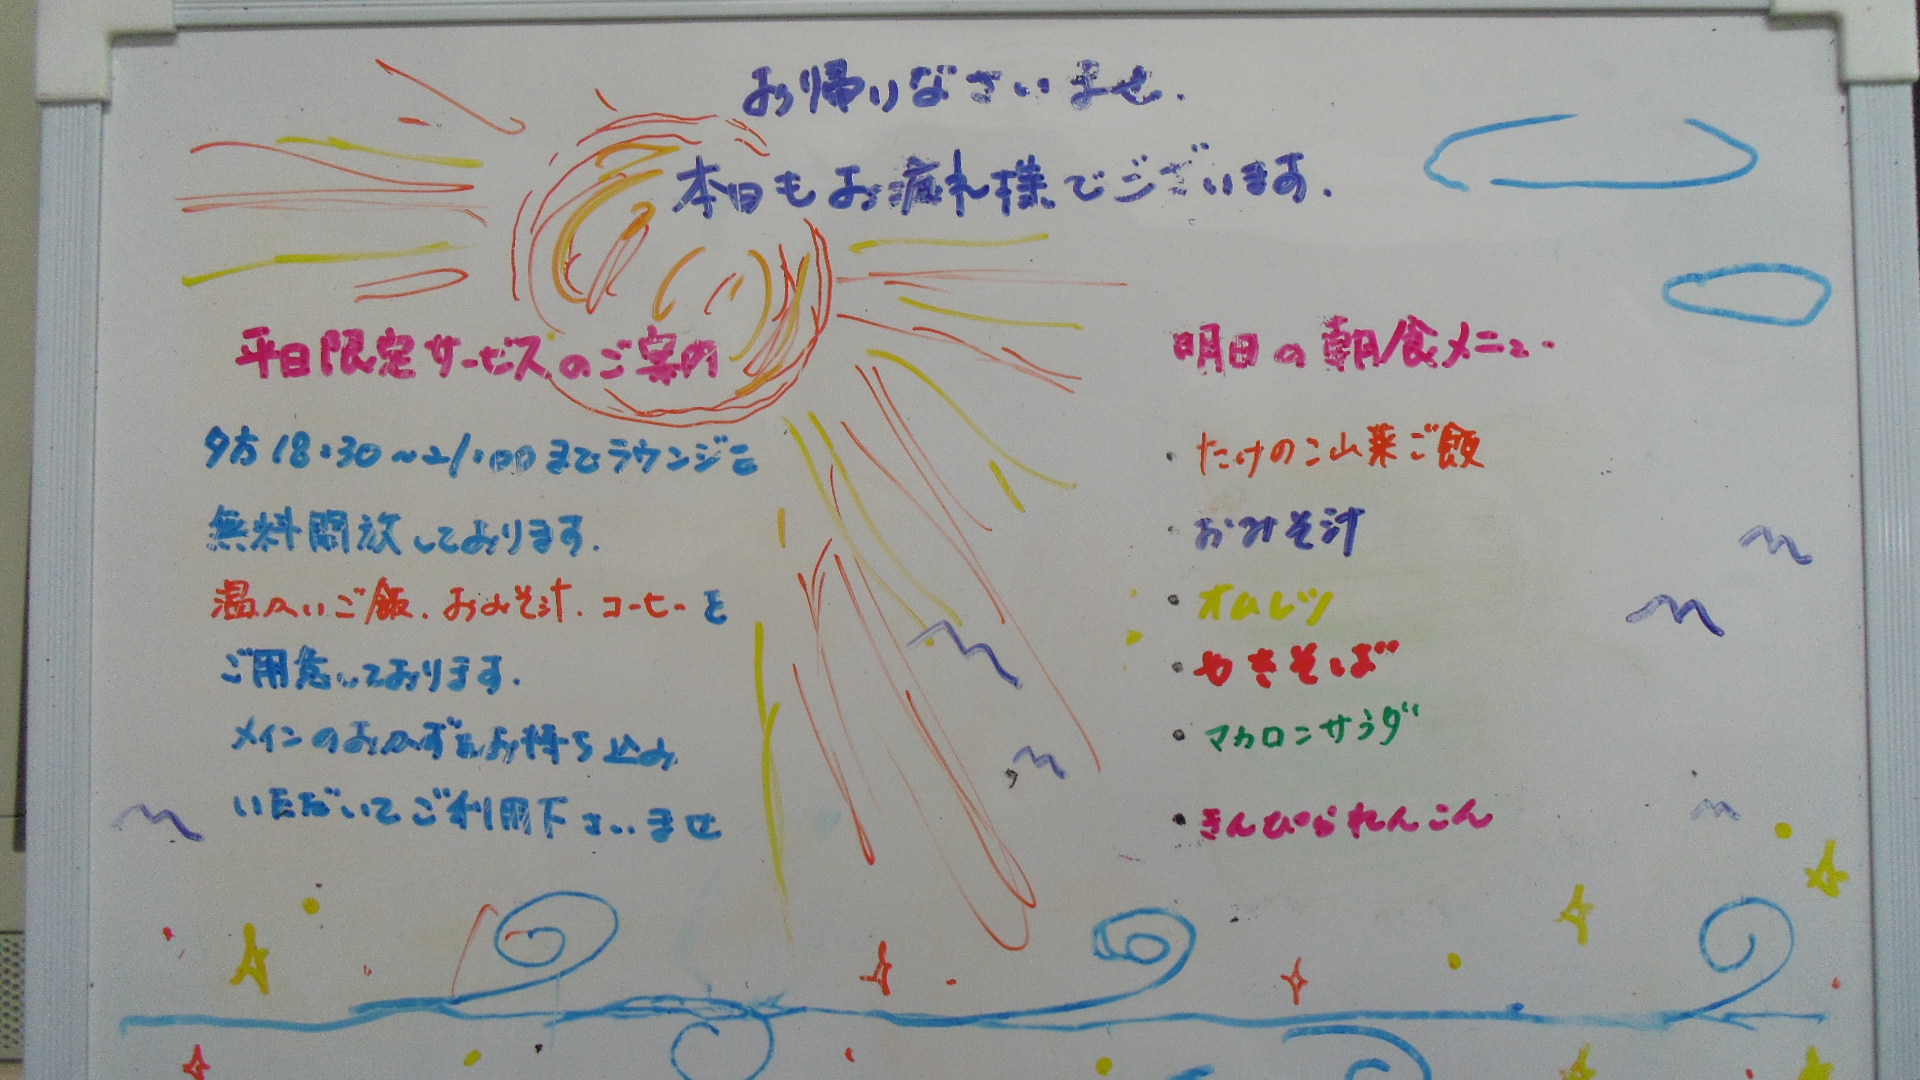 お帰りなさいませ.
本日もお疲れ様でございます.
平日限定サービスのご案内
夕方18:30～21:00までラウンジを
無料開放しております.
温かいご飯.おみそ汁.コーヒーを
ご用意しております.
メインのおかずをお持ち込み
いただいてご利用下さいませ
明日の朝食メニュー
・たけのこ山菜ご飯
・おみそ汁
・オムレツ
・やきそば
・マカロンサラダ
・きんぴられんこん